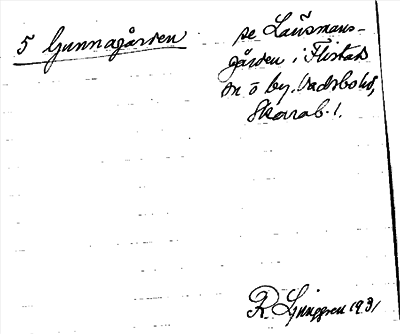 5 Gunnagården
se Länsmans-
gården i Flistads
sn o by. Vadsbo hd,
Skarab. l.
R. Ljunggren 1931